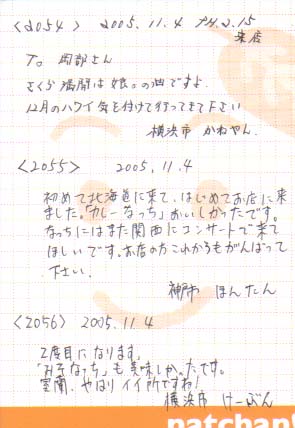 <2054> 2005.11.4 PM.2.15
来店
To 岡部さん
さくら満開は娘。の曲ですよ
12月のハワイ気を付けて行ってきて下さい
横浜市 かねやん.
<2055> 2005.11.4
初めて北海道に来て、はじめてお店に来
ました。「カレーなっち」おいしかったです。
なっちにはまた関西にコンサートで来て
ほしいです。お店の方これからもがんばって
下さい。
神戸市 ほんたん
<2056> 2005.11.4
2度目になります。
「みそなっち」も美味しかったです。
室蘭、やはりイイ所ですね!
横浜市 けーぶん
natchan!